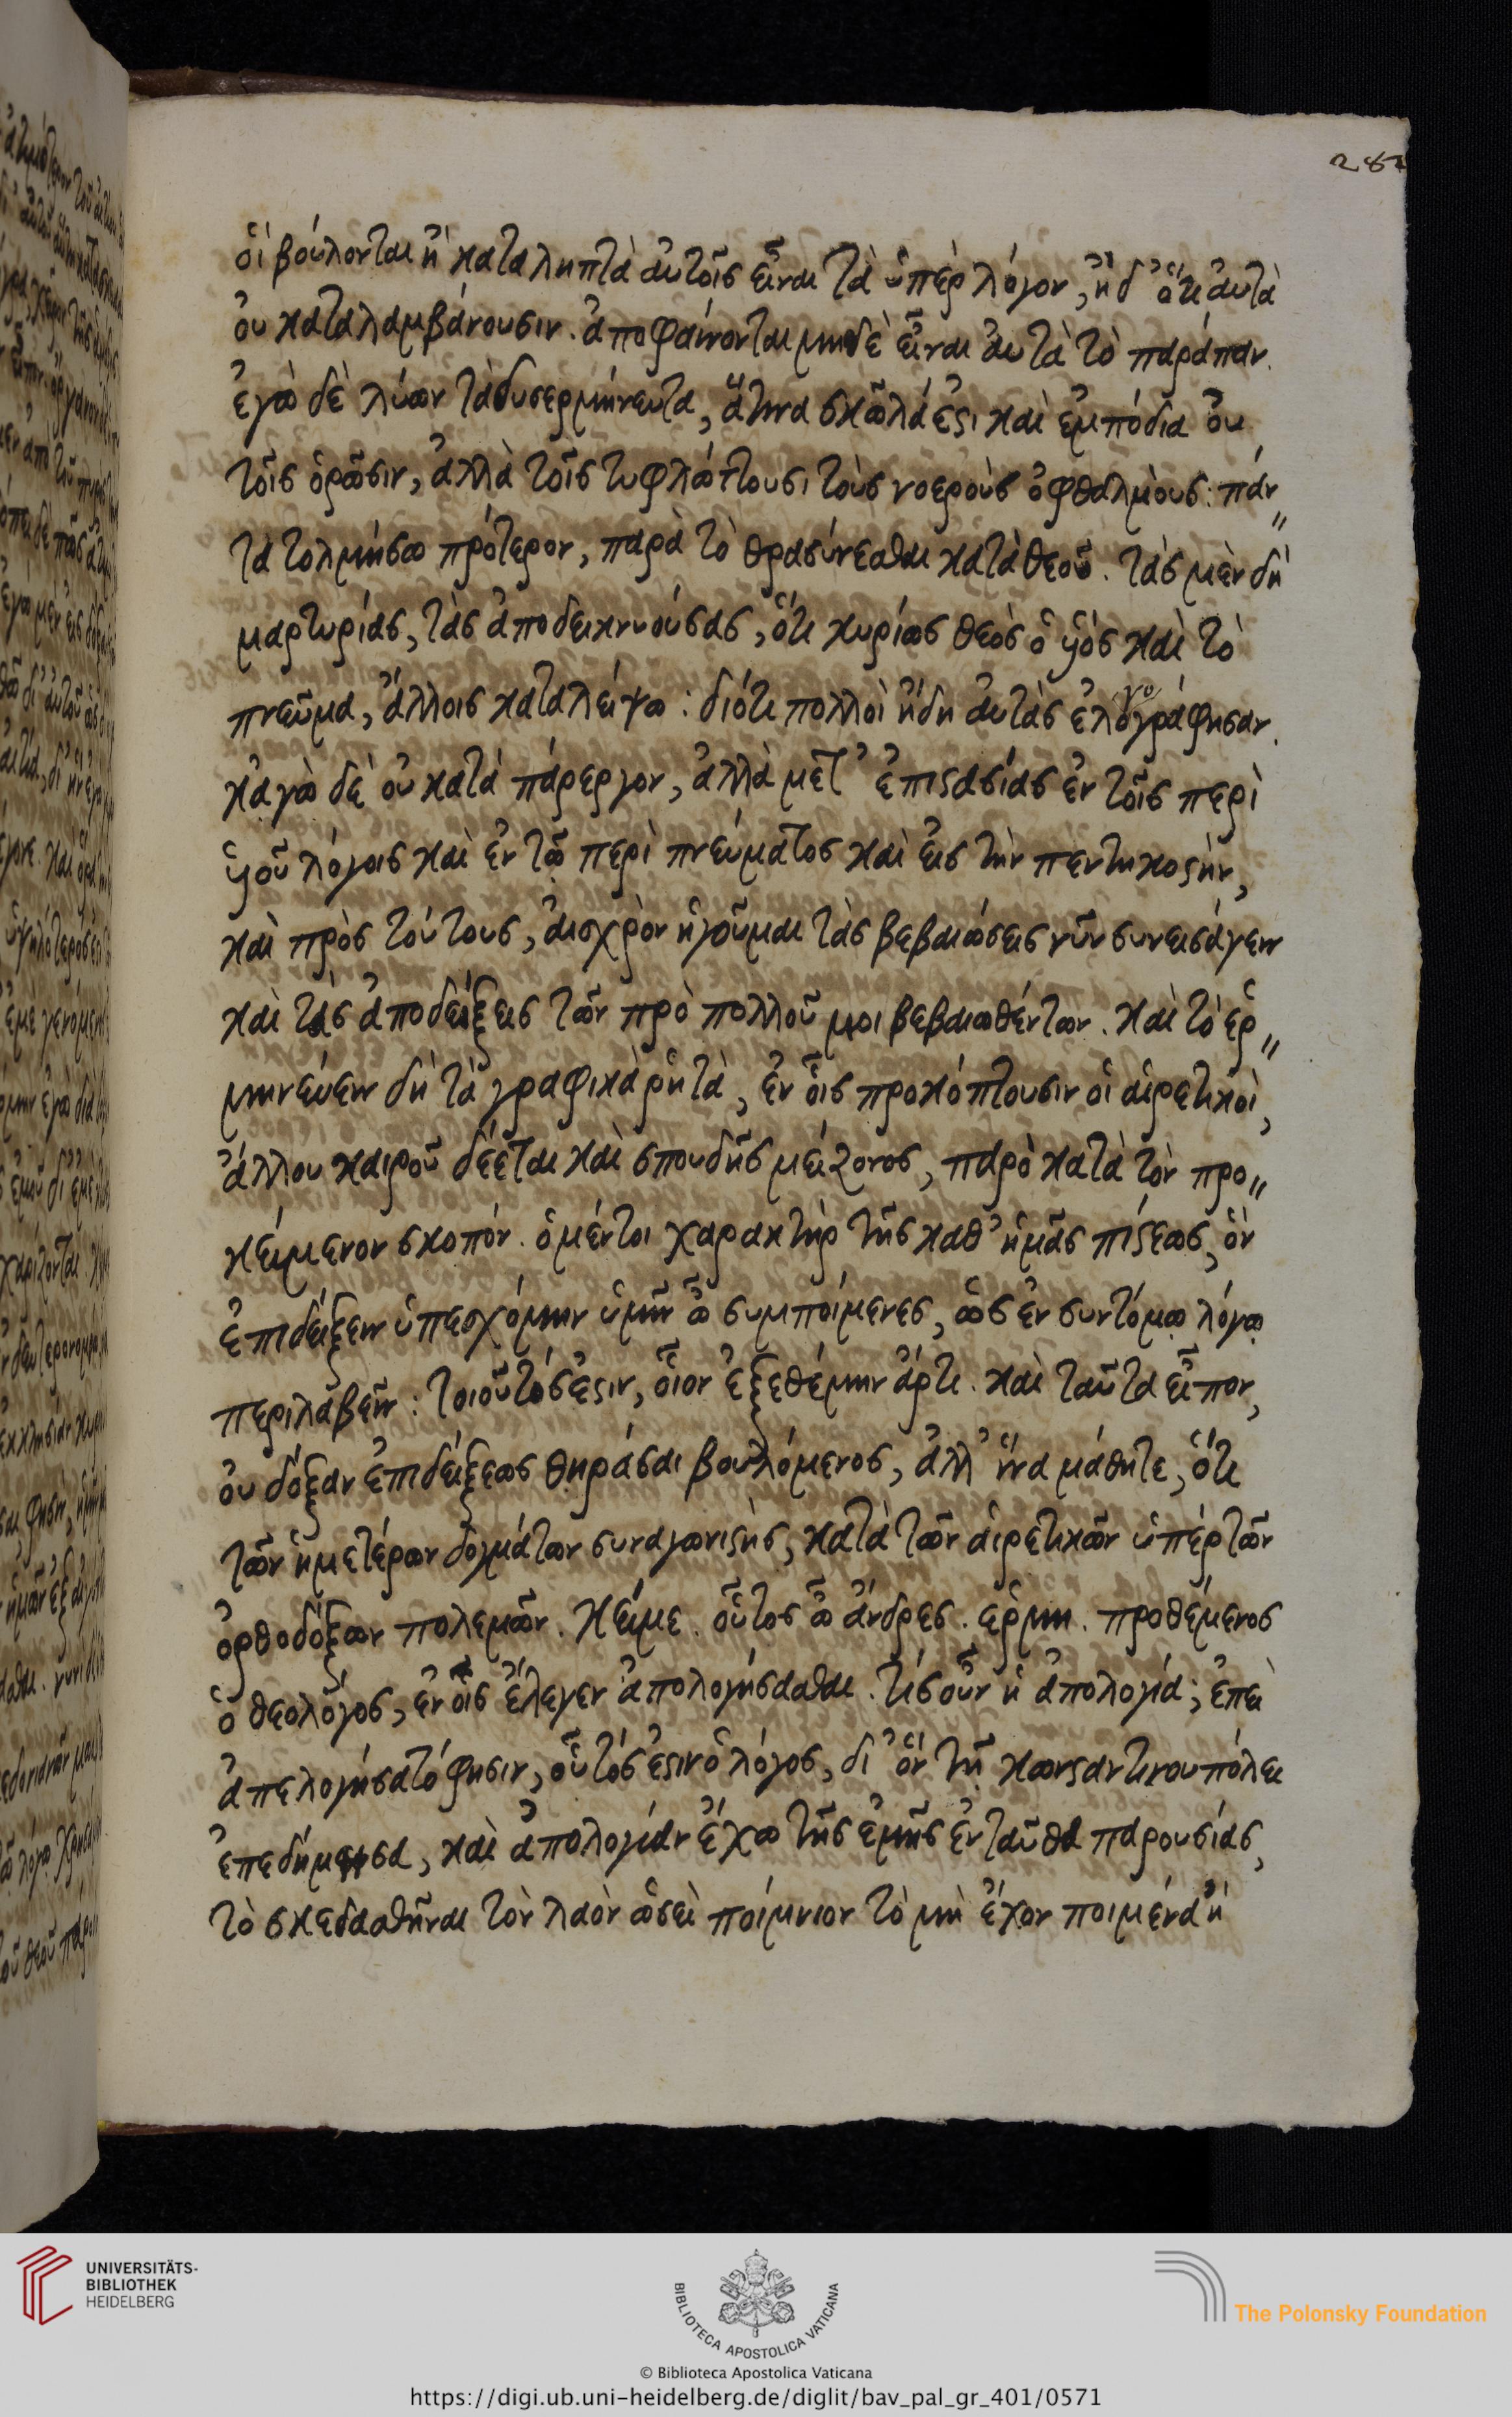 287
οἳ βούλονται ἢ καταληπτὰ αὐτοῖς εἶναι τὰ ὑπὲρ λόγον, ἢ δ' ὅτι αὐτὰ
οὐ καταλαμβάνουσιν. ἀποφαίνονται μηδὲ εἶναι αὐτὰ τὸ παράπαν.
ἐγὼ δὲ λύων τὰ δυσερμήνευτα, ἅτινα σκῶλά ἐστι καὶ ἐμπόδια οὐ
τοῖς ὁρῶσιν, ἀλλὰ τοῖς τυφλώττουσι τοὺς νοεροὺς ὀφθαλμοὺς: πάν"
τα τολμήσω πρότερον, παρὰ τὸ θρασύνεσθαι κατὰ θεοῦ. τὰς μὲν δὴ
μαρτυρίας, τὰς ἀποδεικνυούσας, ὅτι κυρίως θεὸς ὁ υἱὸς καὶ τὸ
πνεῦμα, ἄλλοις καταλείψω: διότι πολλοὶ ἤδη αὐτὰς ἐλογογράφησαν.
κἀγὼ δὲ οὐ κατὰ πάρεργον, ἀλλὰ μετ' ἐπιστασίας ἐν τοῖς περὶ
υἱοῦ λόγοις καὶ ἐν τῷ περὶ πνεύματος καὶ εἰς τὴν πεντηκοστήν,
καὶ πρὸς τούτους, αἰσχρὸν ἡγοῦμαι τὰς βεβαιώσεις νῦν συνεισάγειν
καὶ τὰς ἀποδείξεις τῶν πρὸ πολλοῦ μοι βεβαιωθέντων. καὶ τὸ ἑρ"
μηνεύειν δὴ τὰ γραφικὰ ῥητὰ, ἐν οἷς προκόπτουσιν οἱ αἱρετικοὶ,
ἄλλου καιροῦ δέεται καὶ σπουδῆς μείζονος, παρὸ κατὰ τὸν προ"
κείμενον σκοπόν. ὁ μέντοι χαρακτὴρ τῆς καθ' ἡμᾶς πίστεως, ὃν
ἐπιδείξειν ὑπεσχόμην ὑμῖν ὦ συμποίμενες, ὡς ἐν συντόμῳ λόγῳ
περιλαβεῖν: τοιοῦτός ἐστιν, οἷον ἐξεθέμην ἄρτι. καὶ ταῦτα εἶπον,
οὐ δόξαν ἐπιδείξεως θηρᾶσαι βουλόμενος, ἀλλ' ἵνα μάθητε, ὅτι
τῶν ἡμετέρων δογμάτων συναγωνιστὴς, κατὰ τῶν αἱρετικῶν ὑπὲρ τῶν
ὀρθοδόξων πολεμῶν. κείμε. οὗτος ὦ ἄνδρες. ἑρμη. προθέμενος
ὁ θεολόγος, ἐν οἷς ἔλεγεν ἀπολογήσασθαι. τίς οὖν ἡ ἀπολογία; ἐπεὶ
ἀπελογήσατό φησιν, οὗτός ἐστιν ὁ λόγος, δι' ὃν τῇ κωνσταντινουπόλει
ἐπεδήμησα, καὶ ἀπολογίαν ἔχω τῆς ἐμῆς ἐνταῦθα παρουσίας,
τὸ σκεδασθῆναι τὸν λαὸν ὡσεὶ ποίμνιον τὸ μὴ ἔχον ποιμένα ἢ
UNIVERSITÄTS-
BIBLIOTHEK
HEIDELBERG
BIBLIOTECA APOSTOLICA VATICANA
The Polonsky Foundation
© Biblioteca Apostolica Vaticana
https://digi.ub.uni-heidelberg.de/diglit/bav_pal_gr_401/0571